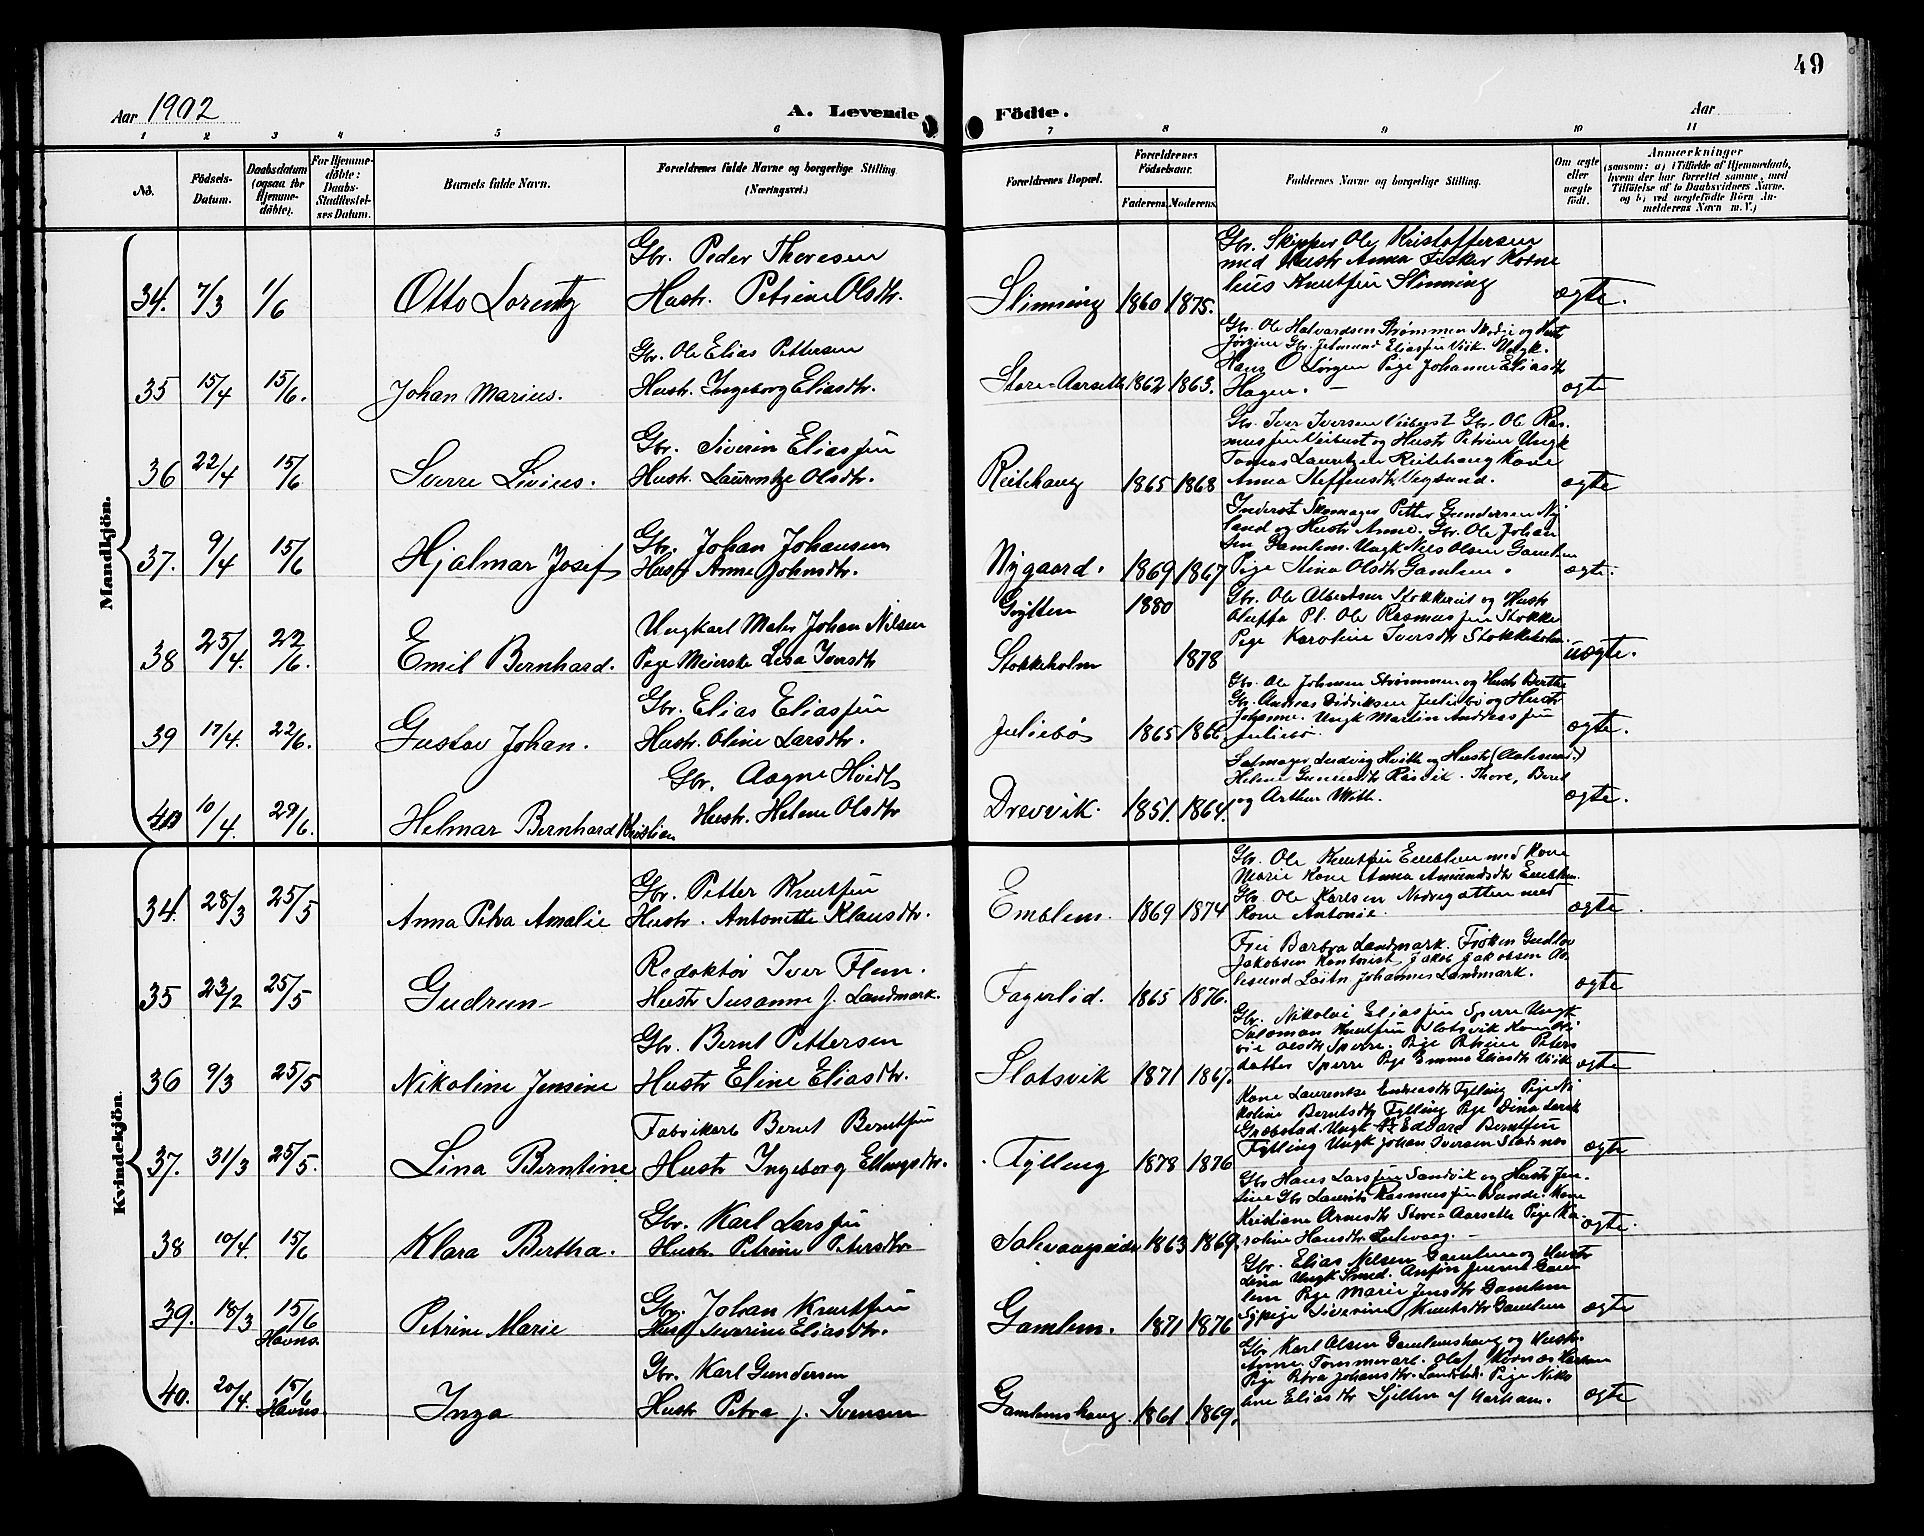 49
Aar 1902
A. Levende Födte.
Aar
1 2 3 4 5 6 7 8 9 10 11
No.
Födsels-Datum.
Daabsdatum (ogsaa for Hjemme-döbte).
For Hjemme-döbte: Daabs-Stadfæstel-ses Datum.
Barnets fulde Navn.
Forældrenes fulde Navne og borgerlige Stilling. (Næringsvei.)
Forældrenes Bopæl.
Forældrenes Födselsaar.
Faderens. Moderens.
Faddernes Navne og borgerlige Stilling.
Om ægte eller uægte födt.
Anmærkninger
(saasom: a) i Tilfælde af Hjemmedaab, hvem der har forrettet samme, med Tilföielse af to Daabsvidners Navne. og b) ved uægtefödte Börn An-melderens Navn m. V.)
Mandkjön.
34. 7/3 1/6 Otto Lorentz
Gbr. Peder Thoresen
Hustr. Petrine Olsdtr.
Slinning 1860 1875.
Gbr. Skipper Ole Kristoffersen
med Hustr Anna Fisker Korne
lius Knutsen Slinning
ægte.
35 15/4 15/6. Johan Marius.
Gbr. Ole Elias Pettersen
Hustr. Ingeborg Eliasdtr.
Store-Aarseth 1862 1863.
Gbr. Ole Halvardsen Strømmen Skodje og Hustr
Jørgine Gbr. Eliassen Vik. Ungk.
Hans O Pige Johanne Eliasdtr
Hagen. -
ægte
36 22/4 15/6 Sverre Livius.
Gbr. Siverin Eliassen
Hustr. Laurentze Olsdtr.
Reitehaug 1865 1868
Gbr. Iver Iversen Veibust Gbr. Ole Ras-
mussen Veibust og Hustr Petrine Ungk
Tomas Lauritzen Reitehaug Kone
Anna Steffensdtr Vegsund.
ægte
37. 9/4 15/6 Hjalmar Josef
Gbr. Johan Johansen
Hustr Anne Johnsdtr.
Nygaard. 1869 1867
Inderst Skomager Petter Gundersen Ny
land og Hustr Anne. Gbr. Ole Johan
sen Gamlem. Ungk Nils Olsen Gamlem
Pige Stina Olsdtr Gamlem.
ægte.
38 25/4. 22/6. Emil Bernhard.
Ungkarl Maler Johan Nilsen
Pige Meierske Lesa Iversdtr
Grytten 1880
Stokkeholm 1878
Gbr. Ole Albertsen Stokkereit og Hustr
Oluffa Pl. Ole Rasmussen Stokke
Pige Karoline Iversdtr Stokkeholm.
uægte.
39 17/4. 22/6. Gustav Johan.
Gbr. Elias Eliassen
Hustr. Oline Larsdtr.
Juliebø 1865 1866
Gbr. Ole Johnsen Strømmen og Hustr Berthe
Gbr. Andreas Didriksen Juliebø og Hustr
Johanne. Ungk Martin Andreassen
Juliebø.
ægte.
40 10/4. 29/6. Helmar Bernhard Kristian
Gbr. Aagne Hvidt
Hustr. Helene Olsdtr
Drevvik. 1851. 1864.
Salmager Ludvig Hvitth og Hustr (Aalesund.)
Helene Rasvik. Thore, Berul
og Arthur With.
ægte.
Kvindekjön.
34. 28/3 25/5 Anna Petra Amalie
Gbr. Petter Knutsen
Hustr. Antonette Klausdtr.
Emblem. 1869 1874
Gbr. Ole Knutsen Emblem med Kone
Marie Kone Anna Amundsdtr Emblem.
Gbr. Ole Karlsen Nedregotten med
Kone Antonie.
ægte.
35 23/2 25/5 Gudrun
Redaktør Iver Flem.
Hustr Susanne f. Landmark.
Fagerlid. 1865 1876.
Frú Barbra Landmark. Frøken Gudlov
Jakobsen Kontorist Jakob Jakobsen Aa
lesund Løitn Johannes Landmark.
ægte
36 9/3 25/5 Nikoline Jensine
Gbr. Bernt Pettersen
Hustr Eline Eliasdtr.
Slotsvik 1871 1867.
Gbr. Nikolai Eliassen Sperre Ungk
Salomon Knutsen Slotsvik Kone
Olsdtr Sperre. Pige Petrine Peters
datter Sperre Pige Emma Eliasdtr Vik
ægte
37. 31/3 25/5. Lina Berntine
Fabrikarb Bernt Berntsen
Hustr Ingeborg Ellingsdtr.
Fylling 1878 1876
Kone Laurentze Endreasdtr Fylling Pige Ni
koline Berntsdtr Fylling Pige Dina Larsdtr
Grøbstad. Ungk P. Edvard Berntsen
Fylling Ungk Johan Iversen Stadsnes
ægte
38 10/4. 15/6 Klara Bertha.
Gbr. Karl Larssen
Hustr Petrine Petersdtr
1863 1869.
Gbr Hans Larssen Sandvik og Hustr Jen-
sine Gbr Laurits Rasmussen Kone
Kristiane Arnesdtr Store-Aarseth Pige Ka-
roline Hansdtr
ægte.
39. 18/3 15/6 Havns. Petrine Marie
Gbr. Johan Knutsen
Hustr Severine Eliasdtr.
Gamlem. 1871 1876
Gbr. Elias Nilsen Gamlem og Hustr
Lina Ungk Smed. Anton Jensen Gam
lem Pige Marie Jensdtr Gamlem
Sypige Siverine Knutsdtr Gamlem
ægte
40. 20/4. 15/6 Havns. Inga
Gbr. Karl Gundersen
Hustr Petra f. Svensen
Gamlemshaug. 1861 1869.
Gbr Karl Olsen Gamlemshaug og Hustr.
Anne. Tømmerarb. Olaf Harham
Pige Petra Johansdtr. Pige Niko
line Eliasdtr af Harham.
ægte